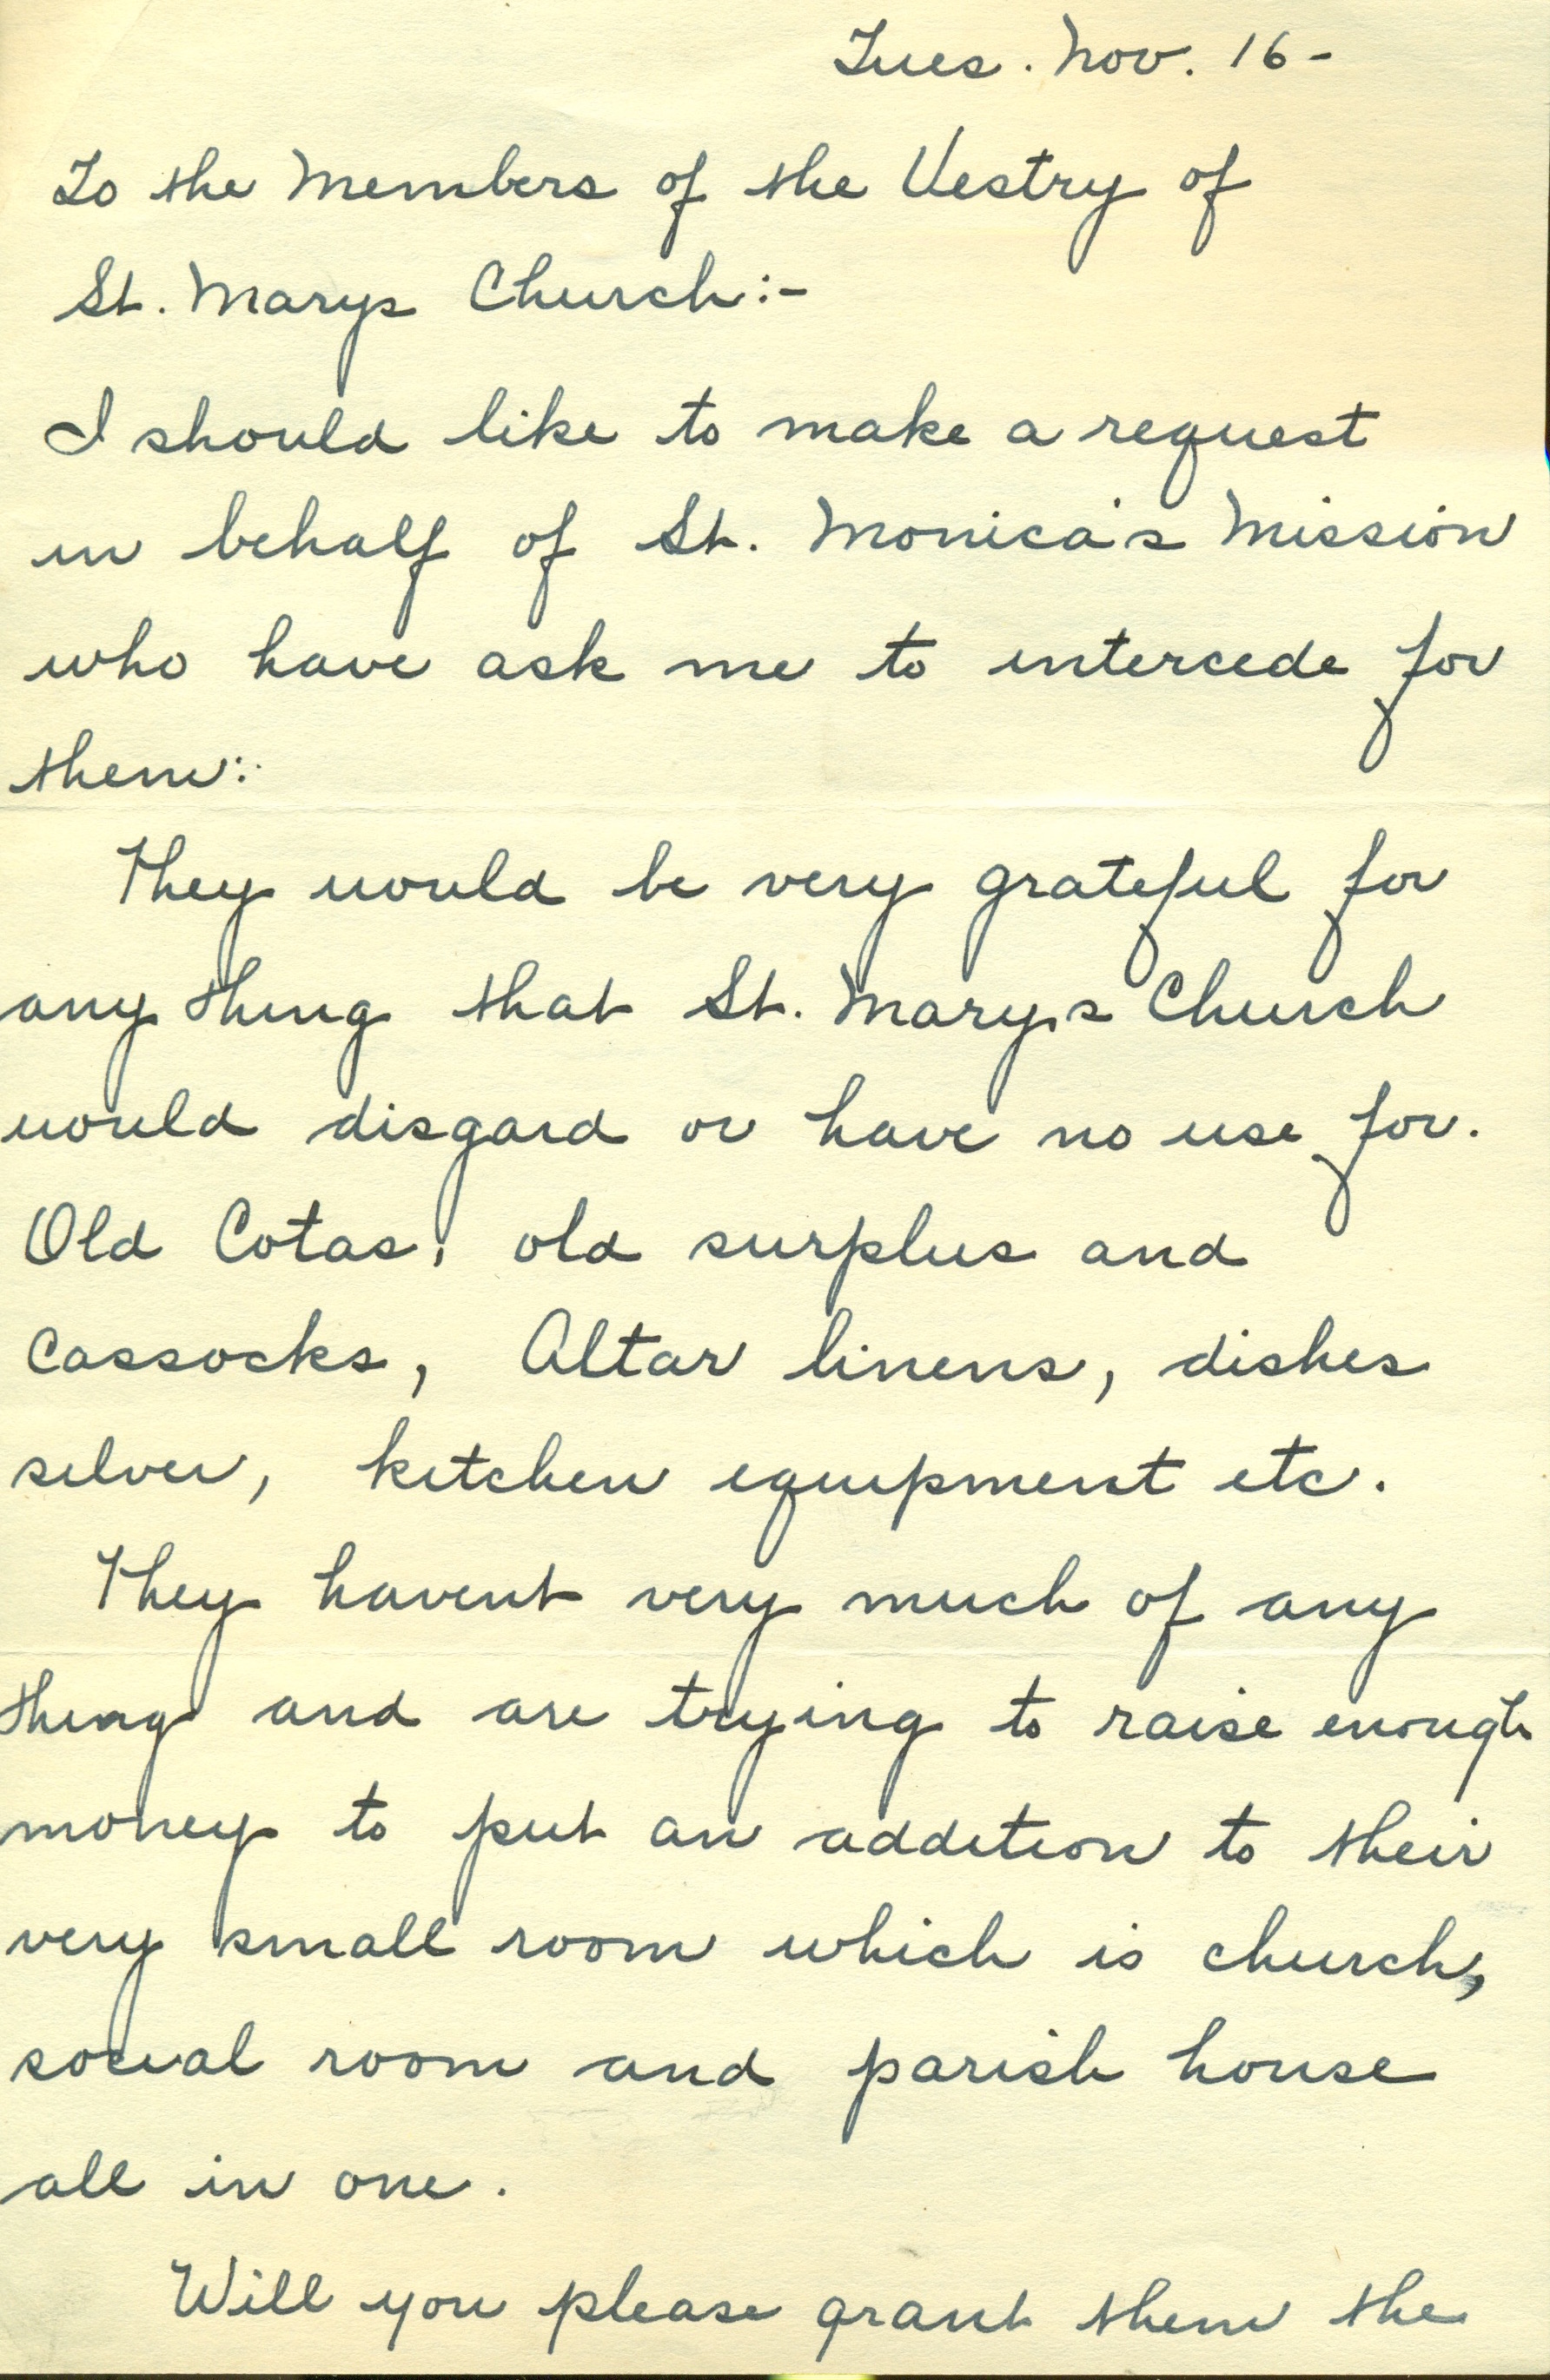 Tues. Nov. 16-
To the Members of the Vestry of
St. Marys Church:-
I should like to make a request
in behalf of St. Monica's Mission
who have ask me to intercede for
them:
They would be very grateful for
any thing that St. Mary's Church
would disgard or have no use for.
Old Cotas, old surplus and
Cassocks, Altar linens, dishes
silver, kitchen equipment etc.
They havent very much of any
thing and are trying to raise enough
money to put an addition to their
very small room which is church,
social room and parish house
all in one.
Will you please grant them the